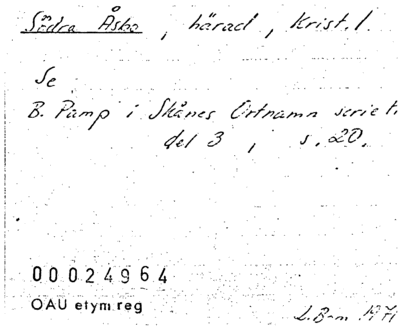 Södra Åsbo, härad, Krist. l.
Se
B. Pamp i Skånes Ortnamn serie
del 3, s. 20.
00024964
OAU etym reg